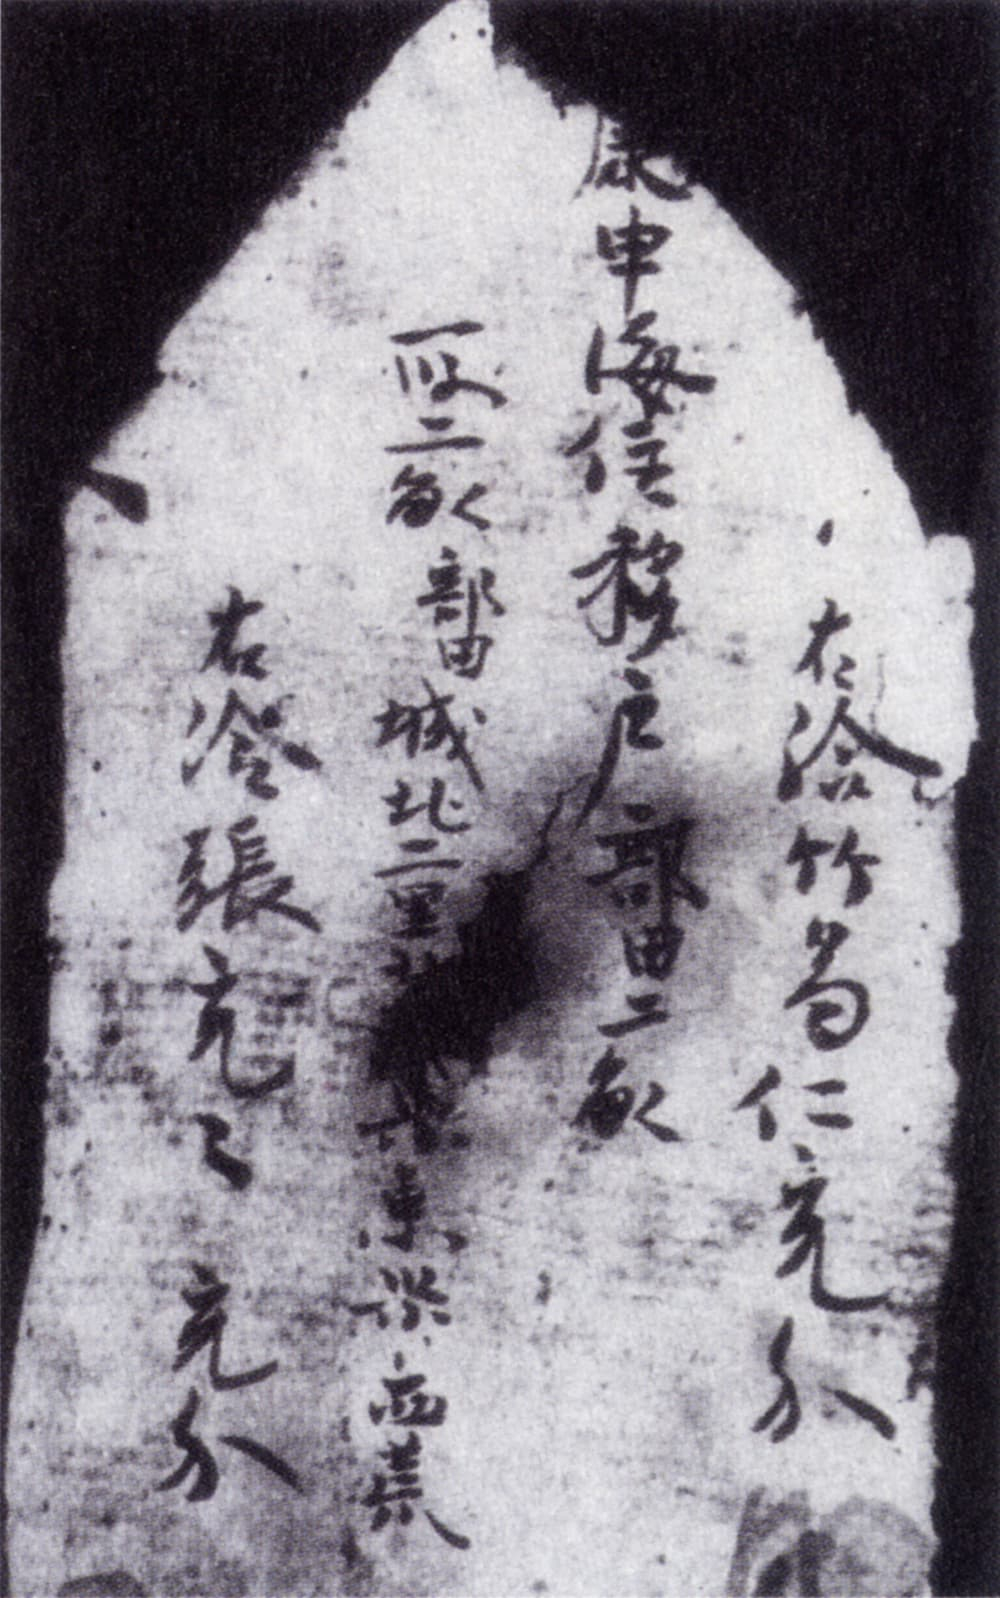 右給竹苟仁充分
康申海住移戶部田二畝
一段二畝部田城北二里 東渠西荒
右給張充々 充分